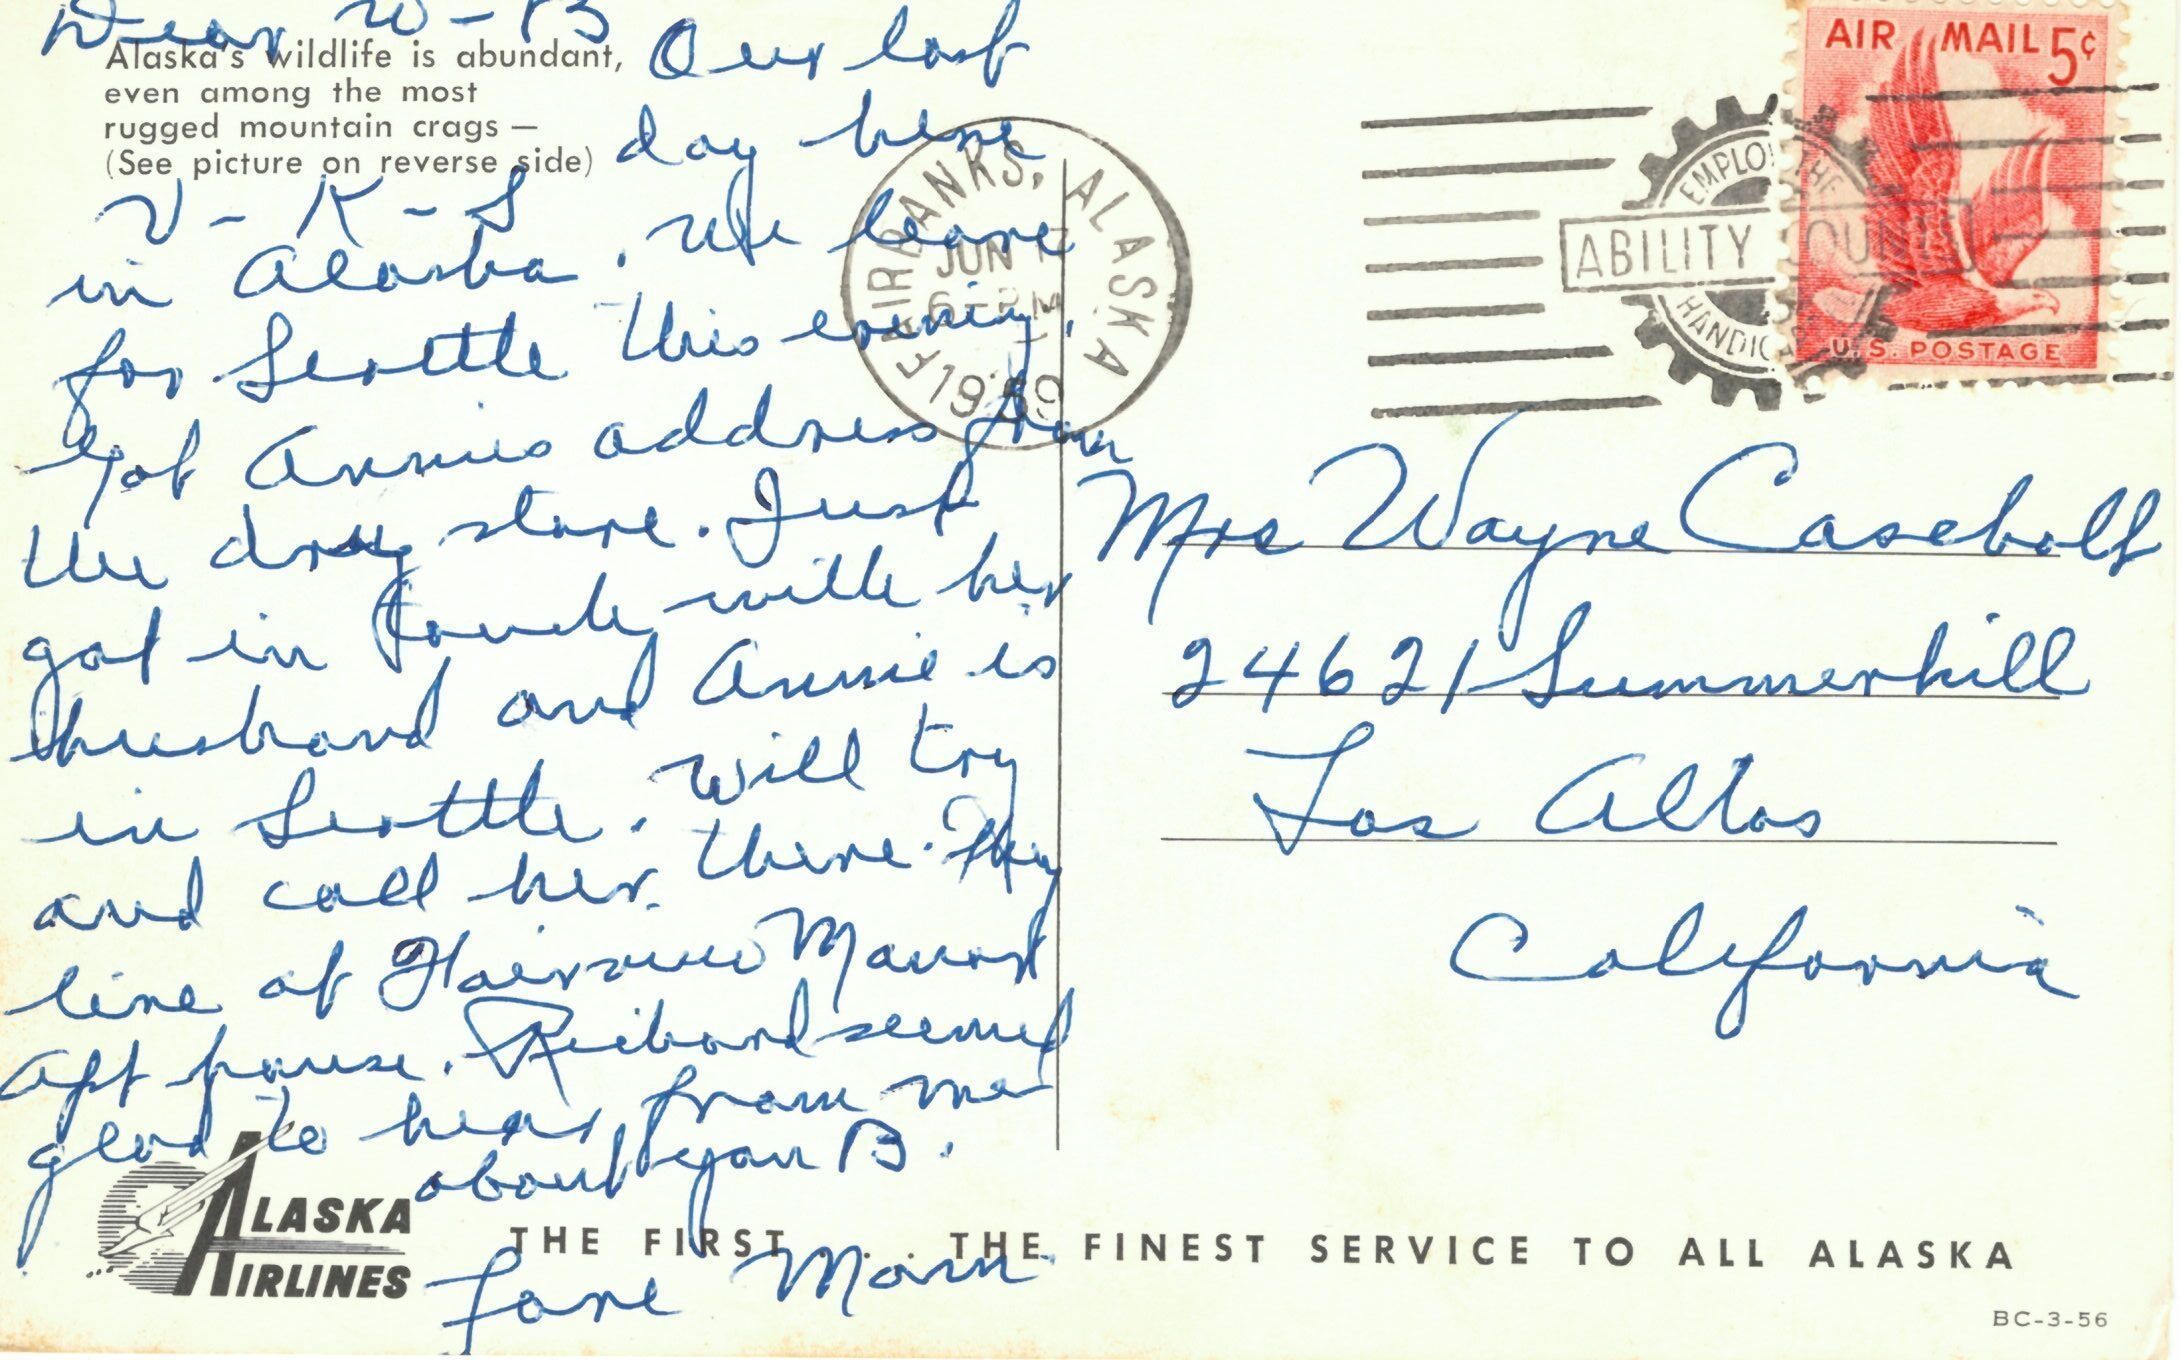 Dear W-B
Alaska's wildlife is abundant,
even among the most
rugged mountain crags —
(See picture on reverse side)
V-K-S
Our last
day here
in Alaska. We leave
for Seattle this evening.
Got Annies address from
the drug store. Just
got in touch with her
husband and Annie is
in Seattle. Will try
and call her there. They
live at Fairview Manor
Apt house. Richard seemed
glad to hear from me
about you B.
Love Mom
ALASKA
AIRLINES
THE FIRST . . . THE FINEST SERVICE TO ALL ALASKA
BC-3-56
FAIRBANKS, ALASKA
JUN
PM
AIR MAIL 5¢
U.S. POSTAGE
EMPLOY THE
ABILITY COUNTS
HANDICAPPED
Mrs Wayne Casebolt
24621 Summerhill
Los Altos
California